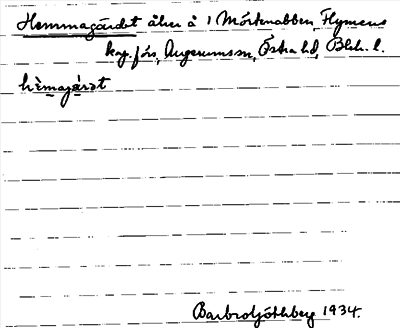 Hemmagärdet åker å 1 Mörtnabben, Flymens
kap. förs, Augerumssn, Östra hd, Blek. l.
hèmagárdt
Barbro Göthberg 1934.